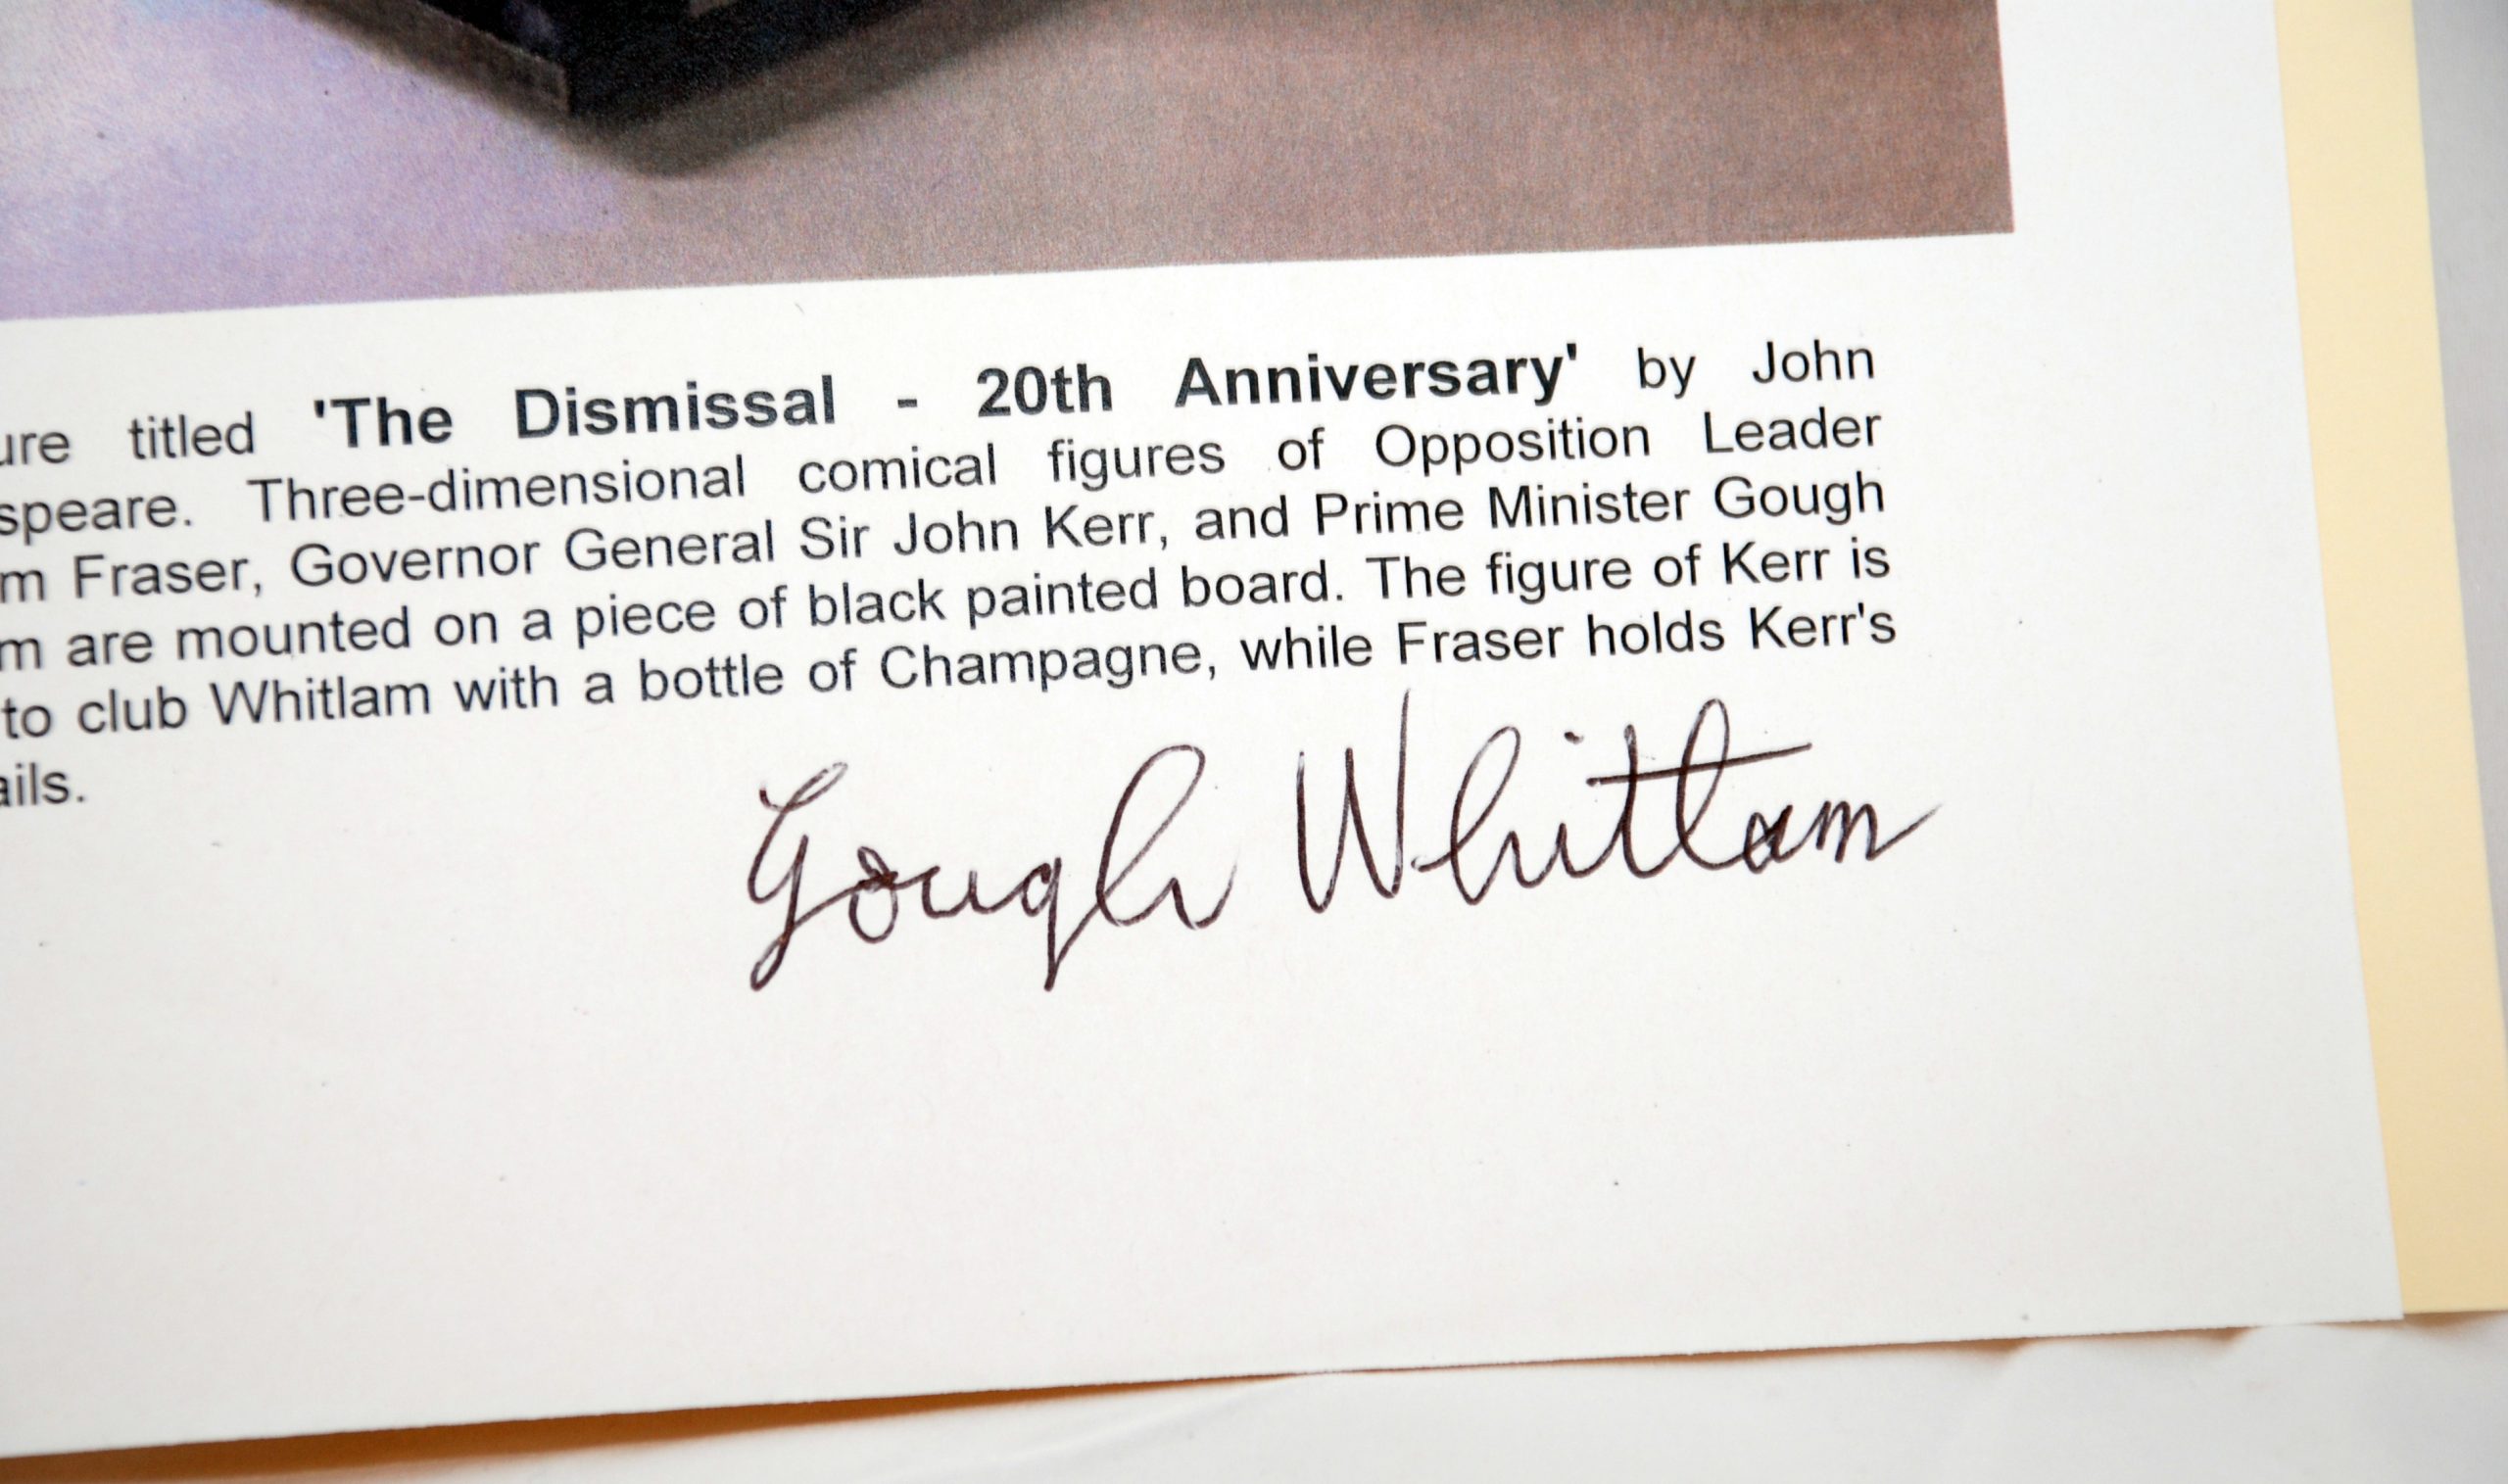 ure titled 'The Dismissal - 20th Anniversary' by John
speare. Three-dimensional comical figures of Opposition Leader
m Fraser, Governor General Sir John Kerr, and Prime Minister Gough
m are mounted on a piece of black painted board. The figure of Kerr is
to club Whitlam with a bottle of Champagne, while Fraser holds Kerr's
ails.
Gough Whitlam